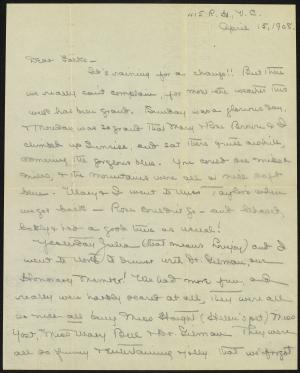 415 R. St., V. C.
April 15, 1908.
Dear Folks -
It's raining for a change!! But then
we really can't complain, for more the weather this
week has been grand. Sunday was a glorious day,
& Monday was so grand that Mary & Rose Brown & I
climbed up Sunrise and sat there quite awhile,
admiring the gorgeous blue. You could see miles &
miles, & the mountains were all a nice soft
blue. Mary & I went to Miss Taylor's when
we got back - Rose couldn't go - and
had a good time as usual!
Yesterday Julia (that means Lovejoy) and I
went to North to dinner with Dr. Gilman, our
Honorary Member! We had more fun, and
really were hardly scared at all, they were all
so nice - all being Miss Haight (Helen's pet) Miss
Yost, Miss Mary Paul & Dr. Gilman. They were
all so funny & entertaining & jolly that we forgot